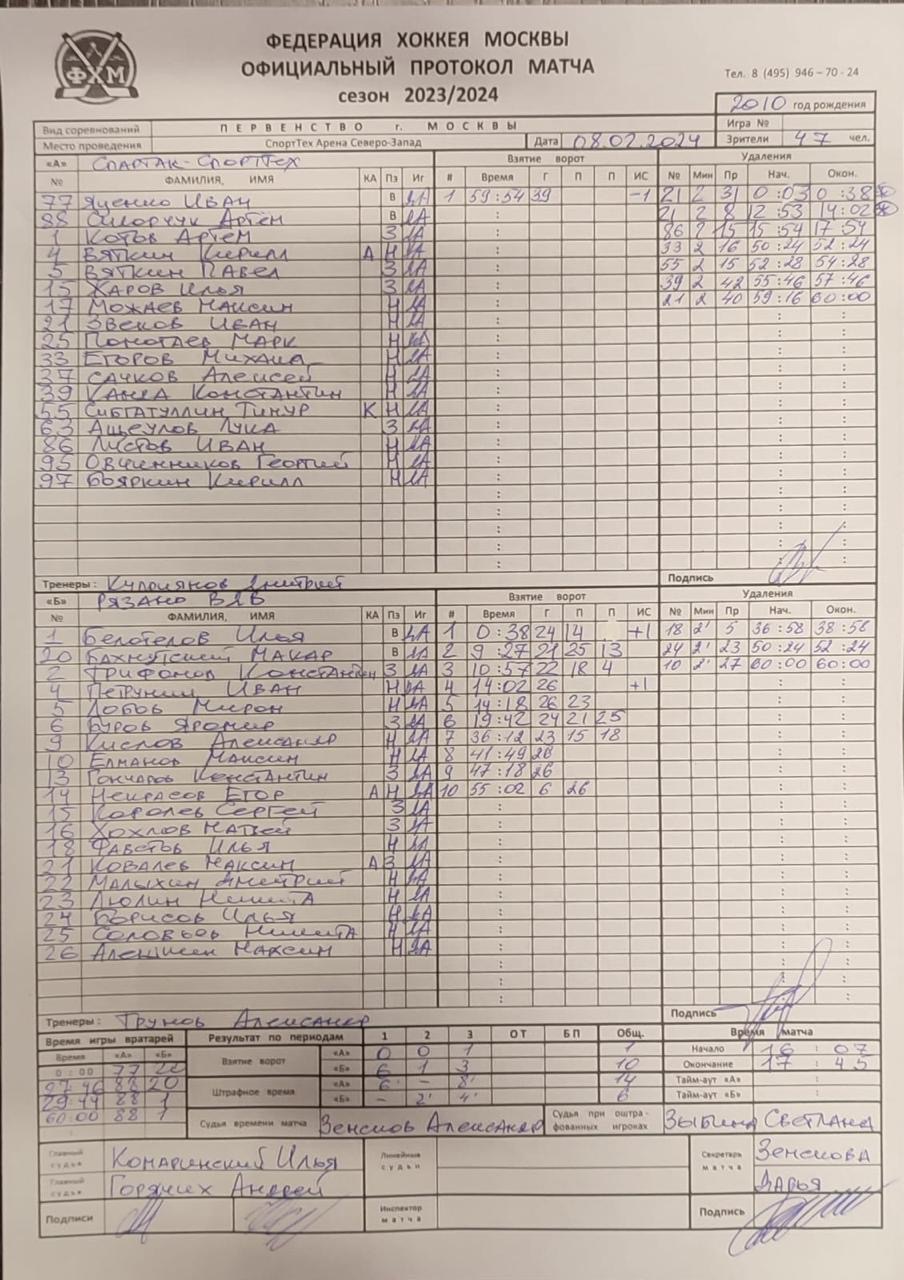 ФЕДЕРАЦИЯ ХОККЕЯ МОСКВЫ
ОФИЦИАЛЬНЫЙ ПРОТОКОЛ МАТЧА
сезон 2023/2024
ФХМ
Тел. 8 (495) 946-70-24
2010 год рождения
Вид соревнований ПЕРВЕНСТВО г. МОСКВЫ Игра №
Место проведения СпортТех Арена Северо-Запад Дата 08.02.2024 Зрители 47 чел.
«А» Спартак-СпортТех Взятие ворот Удаления
№ ФАМИЛИЯ, ИМЯ КА Пз Иг # Время Г П П ИС № Мин Пр Нач. Окон.
77 Яценко Иван В ДА 1 59:54 39 -1 21 2 31 0:03 0:38
88 Сидорчук Артём В ДА 21 2 8 12:53 14:02
1 Котов Артем З ДА 86 2 15 15:54 17:54
4 Вяткин Кирилл А Н ДА 33 2 16 50:24 52:24
5 Вяткин Павел З ДА 55 2 15 52:28 54:28
15 Жаров Илья З ДА 39 2 42 55:46 57:46
17 Можаев Максим Н ДА 21 2 40 59:16 60:00
21 Звеков Иван Н ДА
25 Марк Н ДА
33 Егоров Михаил Н ДА
37 Сачков Алексей Н ДА
39 Константин Н ДА
55 Сибгатуллин Тимур К Н ДА
63 Ащеулов Лука З ДА
86 Листов Иван Н ДА
95 Овчинников Георгий Н ДА
97 Бояркин Кирилл Н ДА
Тренеры: Дмитрий Подпись
«Б» Рязань ВДВ Взятие ворот Удаления
№ ФАМИЛИЯ, ИМЯ КА Пз Иг # Время Г П П ИС № Мин Пр Нач. Окон.
1 Белотелов Илья В ДА 1 0:38 24 14 +1 18 2' 5 36:58 38:58
20 Бахмутский Макар В ДА 2 9:27 21 25 13 24 2' 23 50:24 52:24
2 Трифонов Константин З ДА 3 10:57 22 18 4 10 2' 27 60:00 60:00
4 Петрунин Иван Н ДА 4 14:02 26 +1
5 Лобов Мирон Н ДА 5 14:18 26 23
6 Буров Яромир З ДА 6 19:42 24 21 25
9 Кислов Александр Н ДА 7 36:12 23 15 18
10 Елманов Максим Н ДА 8 41:49 26
13 Гончаров Константин З ДА 9 47:18 26
14 Некрасов Егор А Н ДА 10 55:02 6 26
15 Королев Сергей З ДА
16 Хохлов Матвей З ДА
18 Фаустов Илья Н ДА
21 Ковалев Максим А З ДА
22 Малыхин Дмитрий Н ДА
23 Люлин Никита Н ДА
24 Борисов Илья Н ДА
25 Соловьев Никита Н ДА
26 Алешкин Максим Н ДА
Тренеры: Трунов Александр Подпись
Время игры вратарей Результат по периодам 1 2 3 ОТ БП Общ. Время матча
Время «А» «Б» Взятие ворот «А» 0 0 1 1 Начало 16:07
0:00 77 20 «Б» 6 1 3 10 Окончание 17:45
27:46 88 20 Штрафное время «А» 6' - 8' 14 Тайм-аут «А»
29:44 88 1 «Б» - 2' 4' 6 Тайм-аут «Б»
60:00 88 1 Судья времени матча Зенсков Александр Судья при оштрафованных игроках Зыбина Светлана
Главный судья Комаринский Илья Линейные судьи Секретарь матча Зенскова
Главный судья Горячих Андрей Дарья
Подписи Инспектор матча Подпись